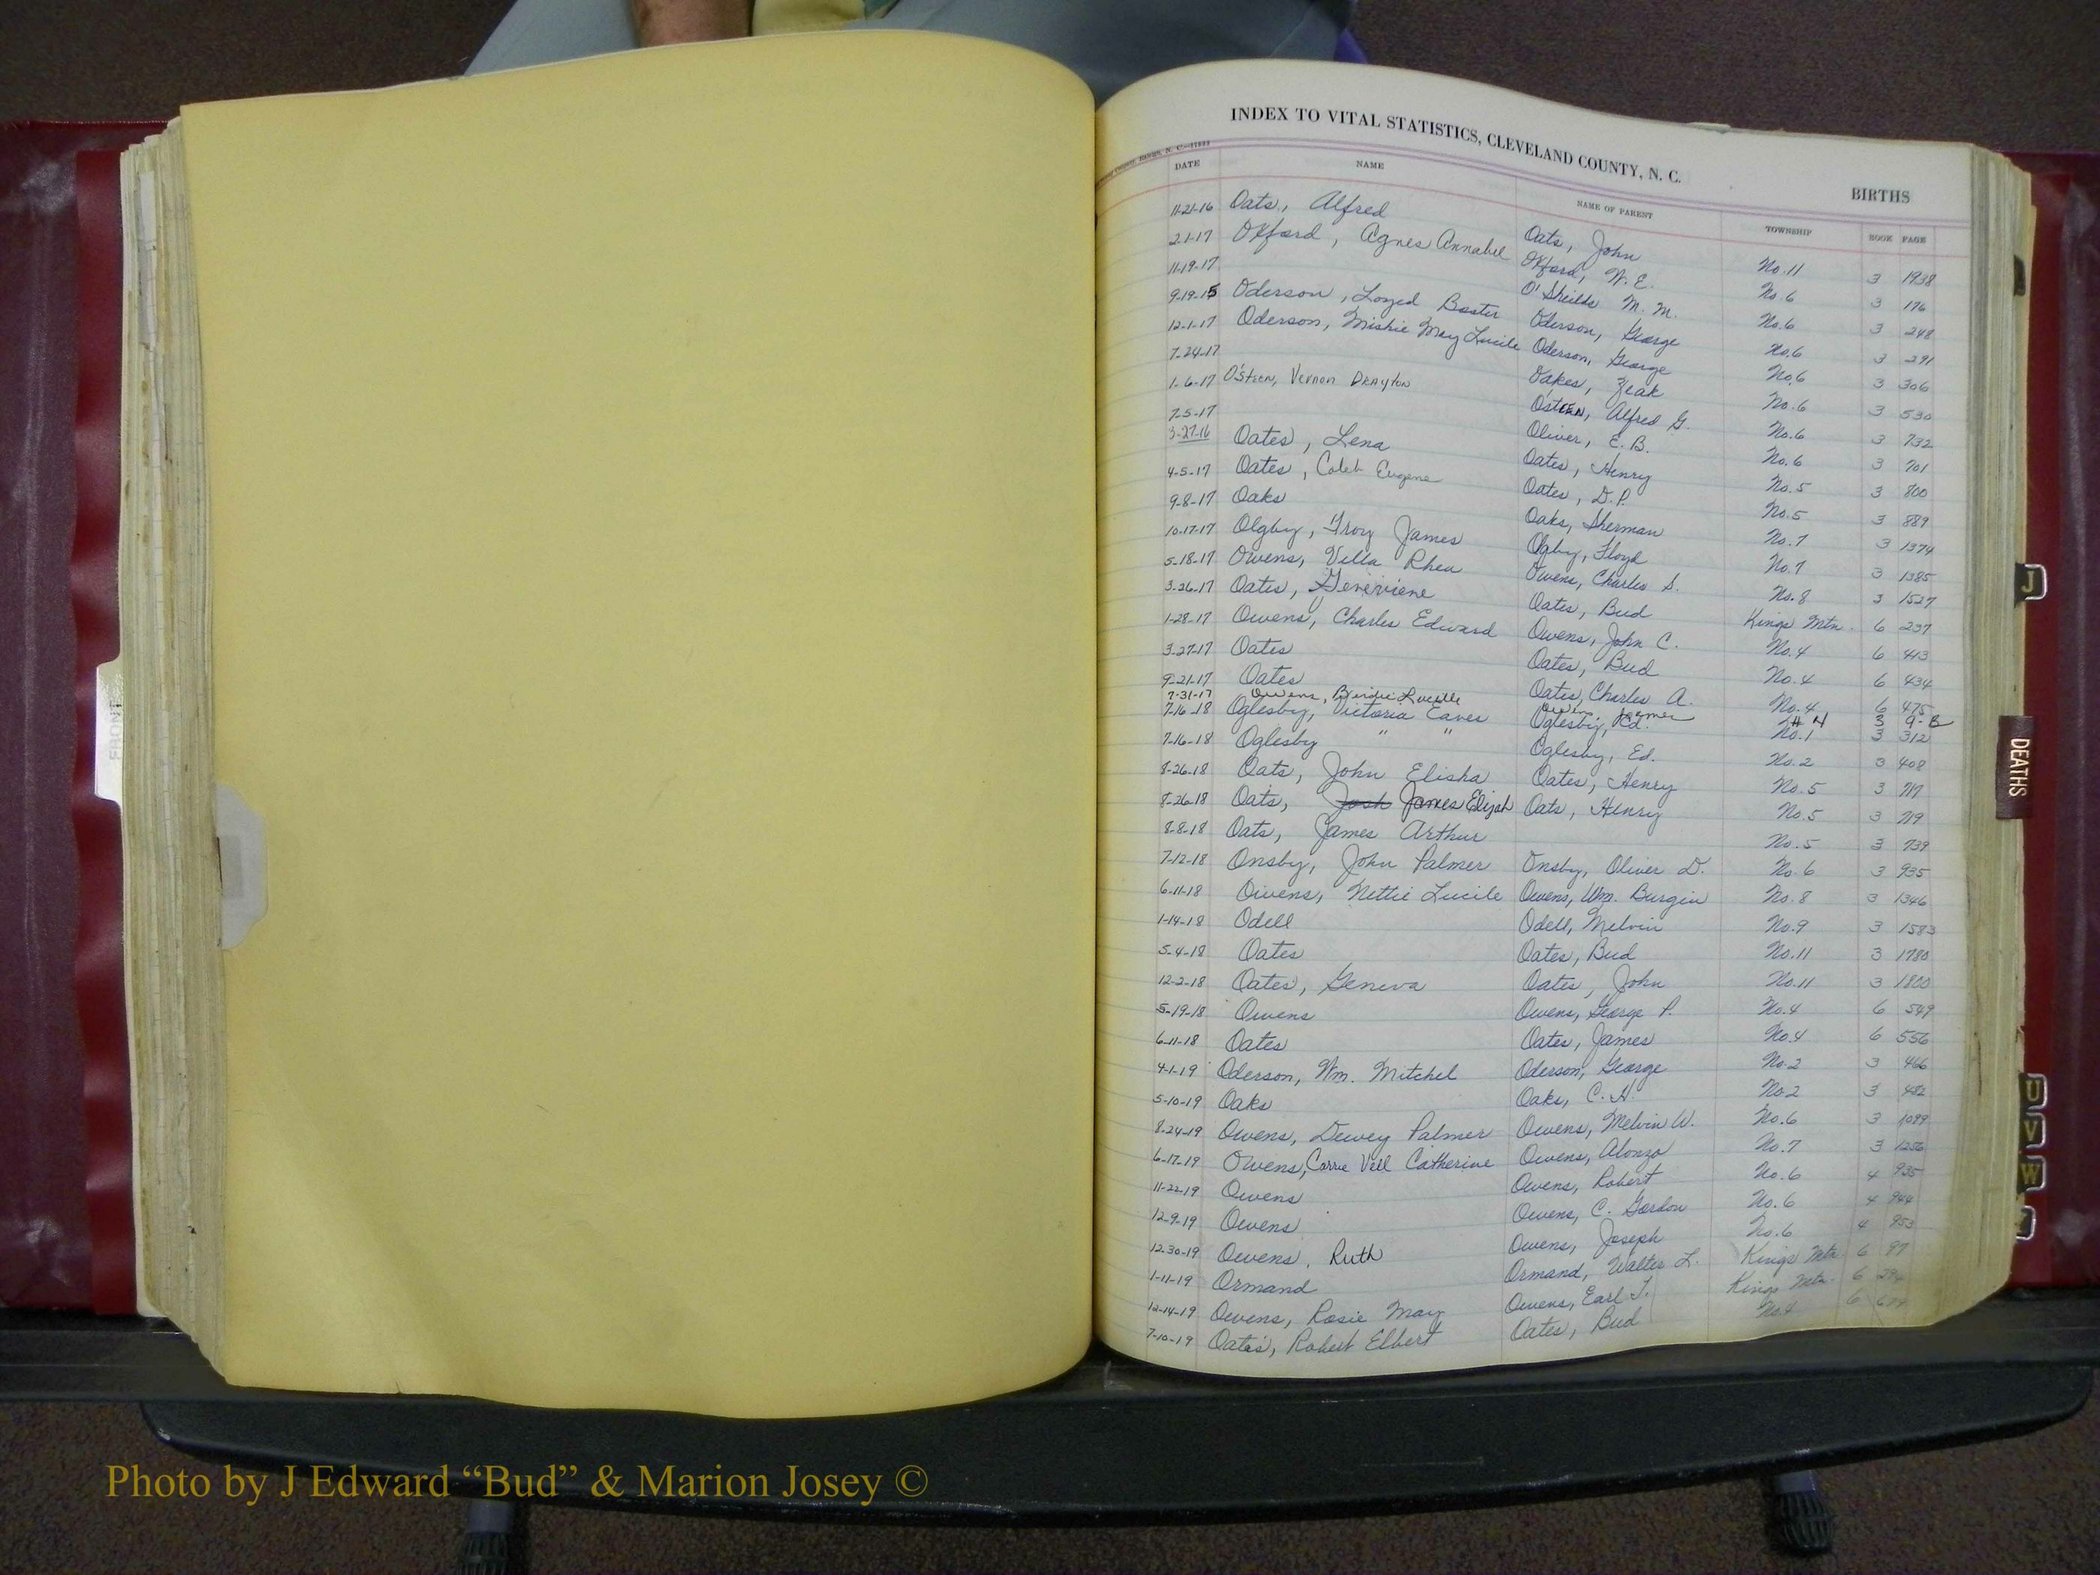 INDEX TO VITAL STATISTICS, CLEVELAND COUNTY, N. C.
BIRTHS
DATE NAME NAME OF PARENT TOWNSHIP BOOK PAGE
11-21-16 Oats, Alfred Oats, John No. 11 3 1938
2-1-17 Oxford, Agnes Annabel Oxford, W. E. No. 6 3 176
11-19-17 O'Sheilds M. M. No. 6 3 248
9-19-15 Oderson, Loyed Baster Oderson, George No. 6 3 291
12-1-17 Oderson, Mishie May Lucile Oderson, George No. 6 3 306
7-24-17 Oakes, Zeak No. 6 3 530
1-6-17 O'Steen, Vernon Drayton Osteen, Alfred G. No. 6 3 732
7-5-17 Oliver, E. B. No. 6 3 701
3-27-16 Oates, Lena Oates, Henry No. 5 3 800
4-5-17 Oates, Caleb Eugene Oates, D. P. No. 5 3 889
9-8-17 Oaks Oaks, Sherman No. 7 3 1374
10-17-17 Olgby, Troy James Ogby, Floyd No. 7 3 1385
5-18-17 Owens, Villa Rhea Owens, Charles S. No. 8 3 1527
3-26-17 Oates, Generviene Oates, Bud Kings Mtn. 6 237
1-28-17 Owens, Charles Edward Owens, John C. No. 4 6 413
3-27-17 Oates Oates, Bud No. 4 6 434
9-21-17 Oates Oates, Charles A. No. 4 6 475
7-31-17 Owens, Birdie Lucille Owens, #4 3 9-B
7-16-18 Oglesby, Victoria Eaves Oglesby, Ed. No. 1 3 312
7-16-18 Oglesby " " Oglesby, Ed. No. 2 3 408
8-26-18 Oats, John Elisha Oates, Henry No. 5 3 717
8-26-18 Oats, Josh James Elijah Oats, Henry No. 5 3 719
8-8-18 Oats, James Arthur No. 5 3 739
7-12-18 Onsby, John Palmer Onsby, Oliver D. No. 6 3 935
6-11-18 Owens, Nettie Lucile Owens, Wm. Burgin No. 8 3 1346
1-14-18 Odell Odell, Melvin No. 9 3 1583
5-4-18 Oates Oates, Bud No. 11 3 1780
12-2-18 Oates, Geneva Oates, John No. 11 3 1800
5-19-18 Owens Owens, George P. No. 4 6 549
6-11-18 Oates Oates, James No. 4 6 556
4-1-19 Oderson, Wm. Mitchel Oderson, George No. 2 3 466
5-10-19 Oaks Oaks, C. H. No. 2 3 482
8-24-19 Owens, Dewey Palmer Owens, Melvin W. No. 6 3 1099
6-17-19 Owens, Carrie Vell Catherine Owens, Alonzo No. 7 3 1256
11-22-19 Owens Owens, Robert No. 6 4 935
12-9-19 Owens Owens, C. Gordon No. 6 4 944
12-30-19 Owens, Ruth Owens, Joseph No. 6 4 953
1-11-19 Ormand Ormand, Walter L. Kings Mtn. 6 97
12-14-19 Owens, Rosie May Owens, Earl T. Kings Mtn. 6
7-10-19 Oates, Robert Elbert Oates, Bud No. 4 6
FRONT
J
DEATHS
U
V
W
Photo by J Edward “Bud” & Marion Josey ©